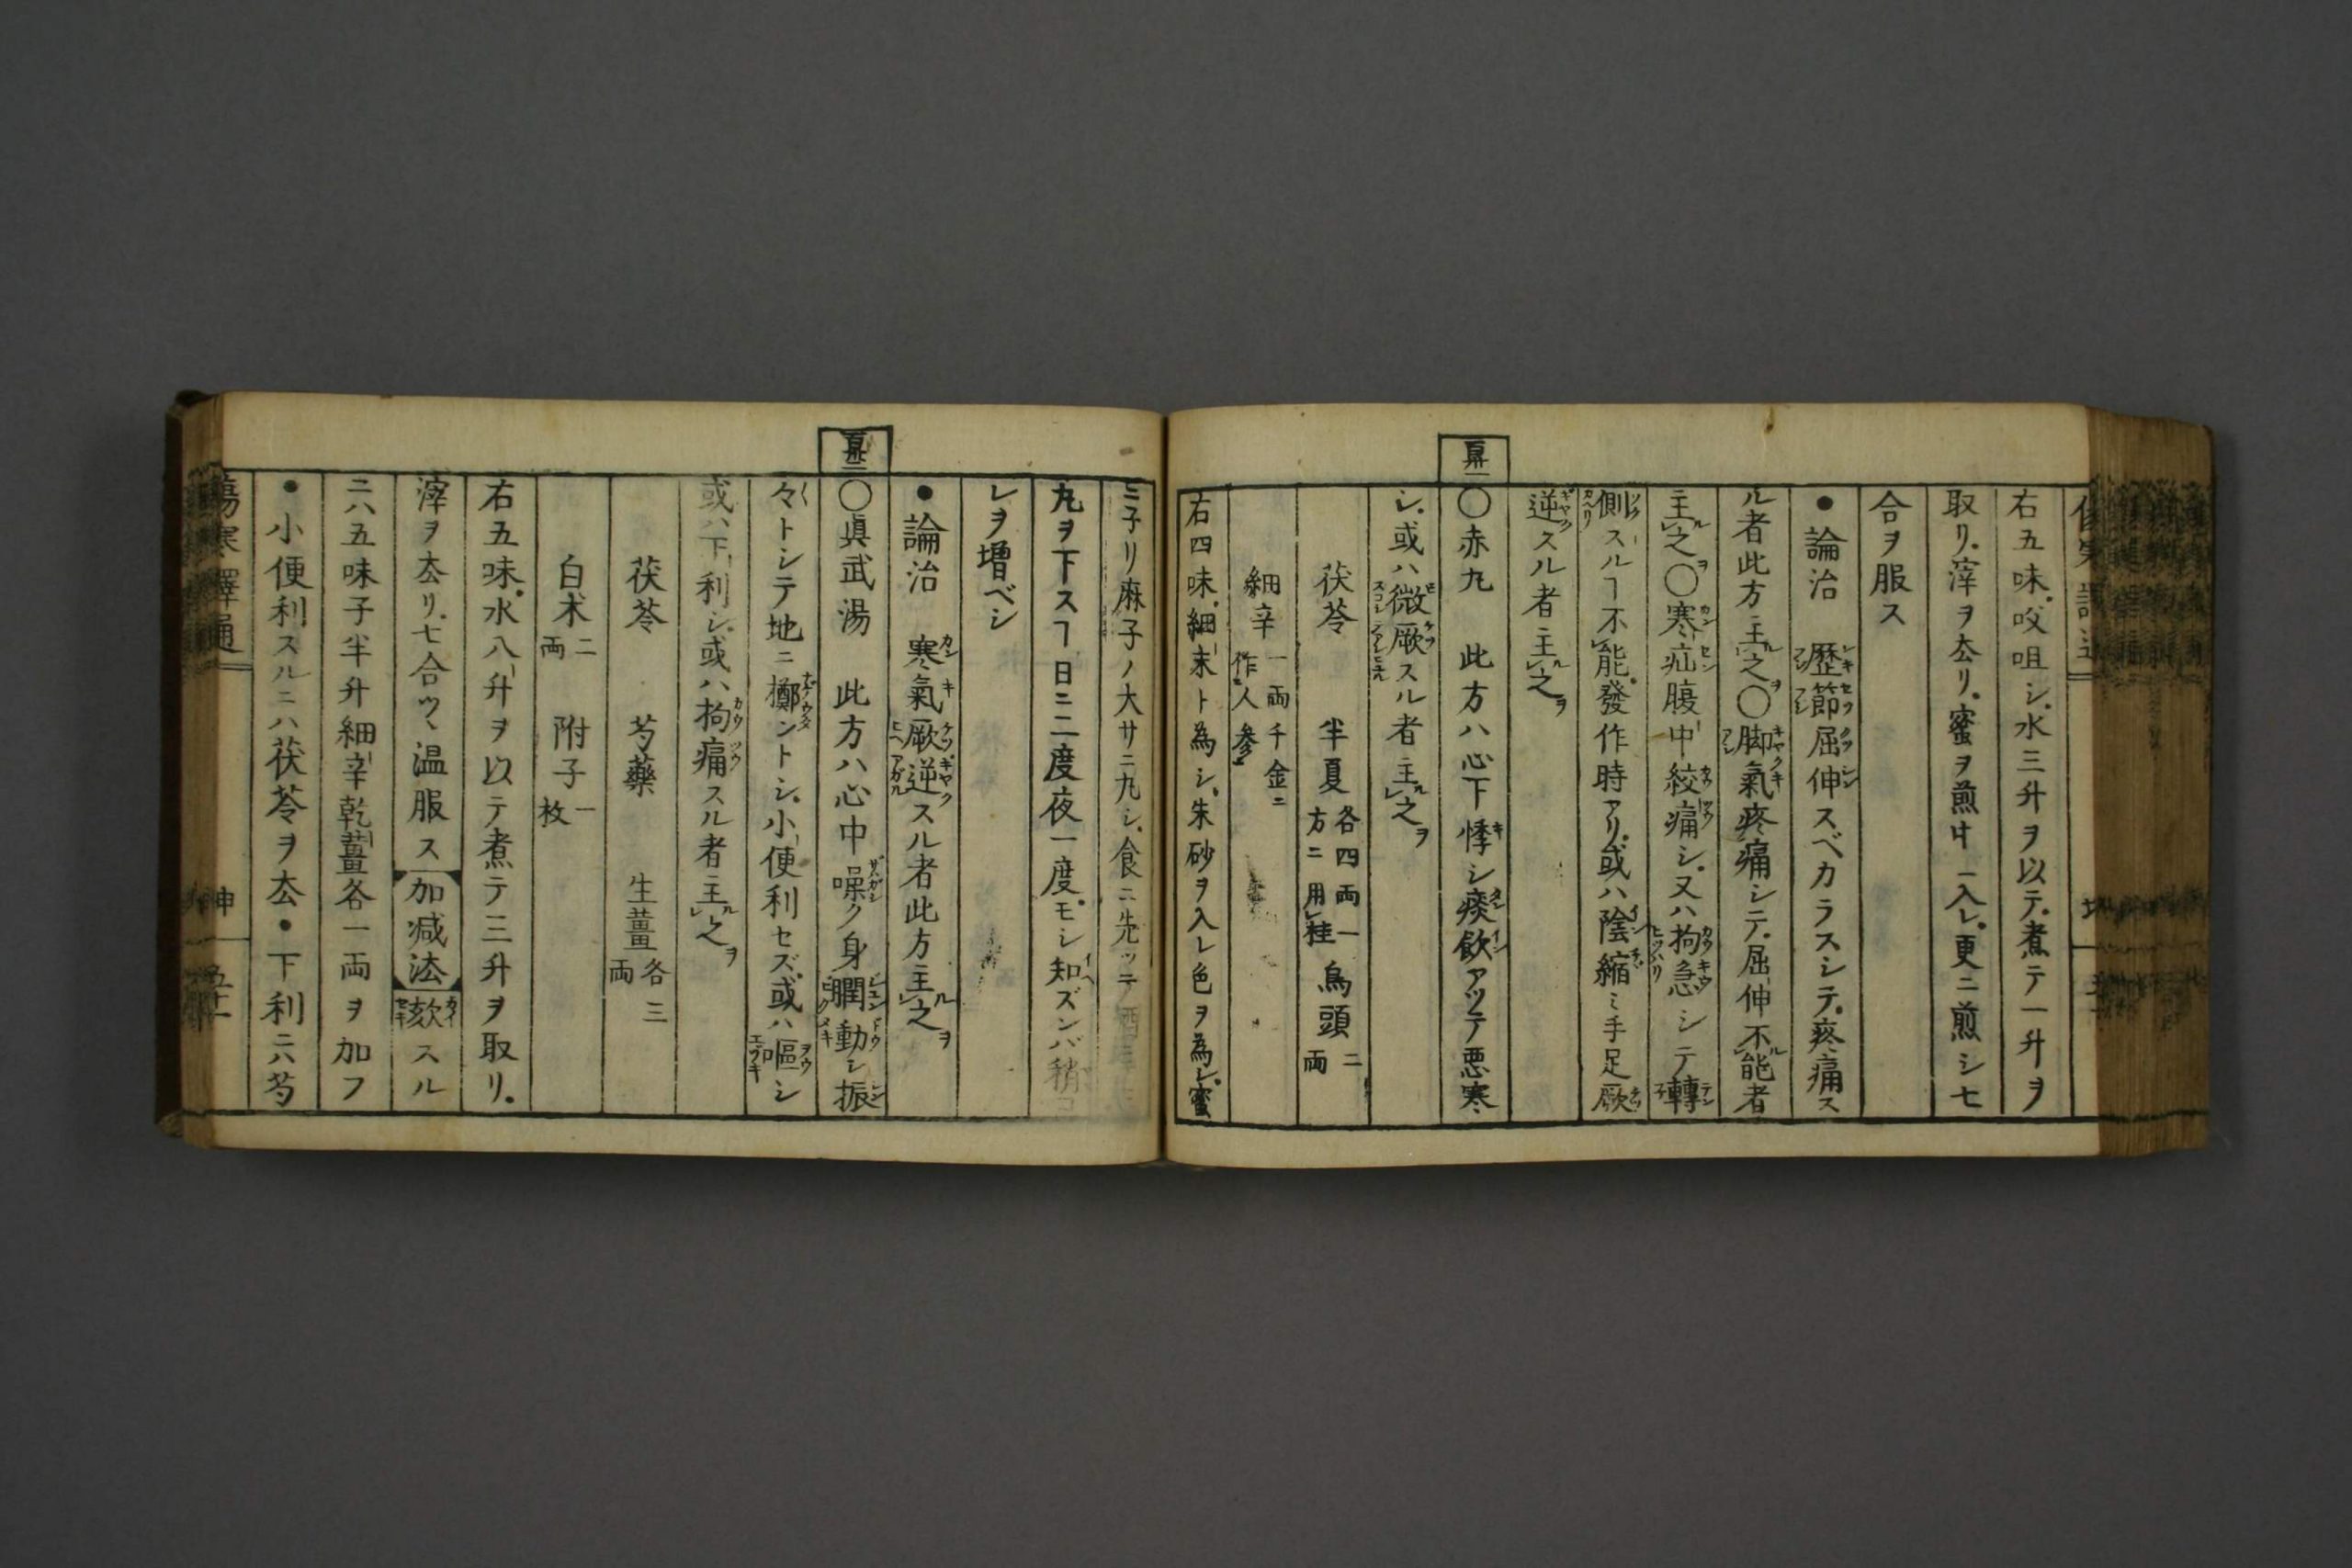 右五味咬咀シ水三升ヲ以テ煮テ一升ヲ
取リ滓ヲ厺リ蜜ヲ煎中ニ入レ更ニ煎シ七
合ヲ服ス
●論治 歷節屈伸スベカラスシテ疼痛ス
ル者此方主ルレ之ヲ〇脚氣疼痛シテ屈伸不レ能ル者
主ルレ之ヲ〇寒疝腹中絞痛シ又ハ拘急シテ轉
側スルヿ不レ能發作時アリ或ハ陰縮ミ手足厥
逆スル者主ルレ之ヲ
〇赤丸 此方ハ心下悸シ痰飲アツテ悪寒
シ或ハ微厥スル者主ルレ之ヲ
茯苓 半夏各四両一方ニ用レ桂 烏頭二両
細辛一両千金ニ作ル人參ニ
右四味細末ト為シ朱砂ヲ入レ色ヲ為レ蜜
ニ子リ麻子ノ大サニ丸シ食ニ先ッテ酒ニテ三
丸ヲ下スヿ日ニ二度夜一度モシ知ズンバ稍コ
レヲ増ベシ
●論治 寒氣厥逆スル者此方主ルレ之ヲ
〇眞武湯 此方ハ心中噪ク身瞤動シ振
々トシテ地ニ擲ントシ小便利セズ或ハ嘔シ
或ハ下利シ或ハ拘痛スル者主ルレ之ヲ
茯苓 芍藥 生薑各三両
白朮二両 附子一枚
右五味水八升ヲ以テ煮テ三升ヲ取リ
滓ヲ厺リ七合ツヽ温服ス 加減法 欬スル
ニハ五味子半升細辛乾薑各一両ヲ加フ
●小便利スルニハ茯苓ヲ厺●下利ニハ芍
傷寒譯通
坤